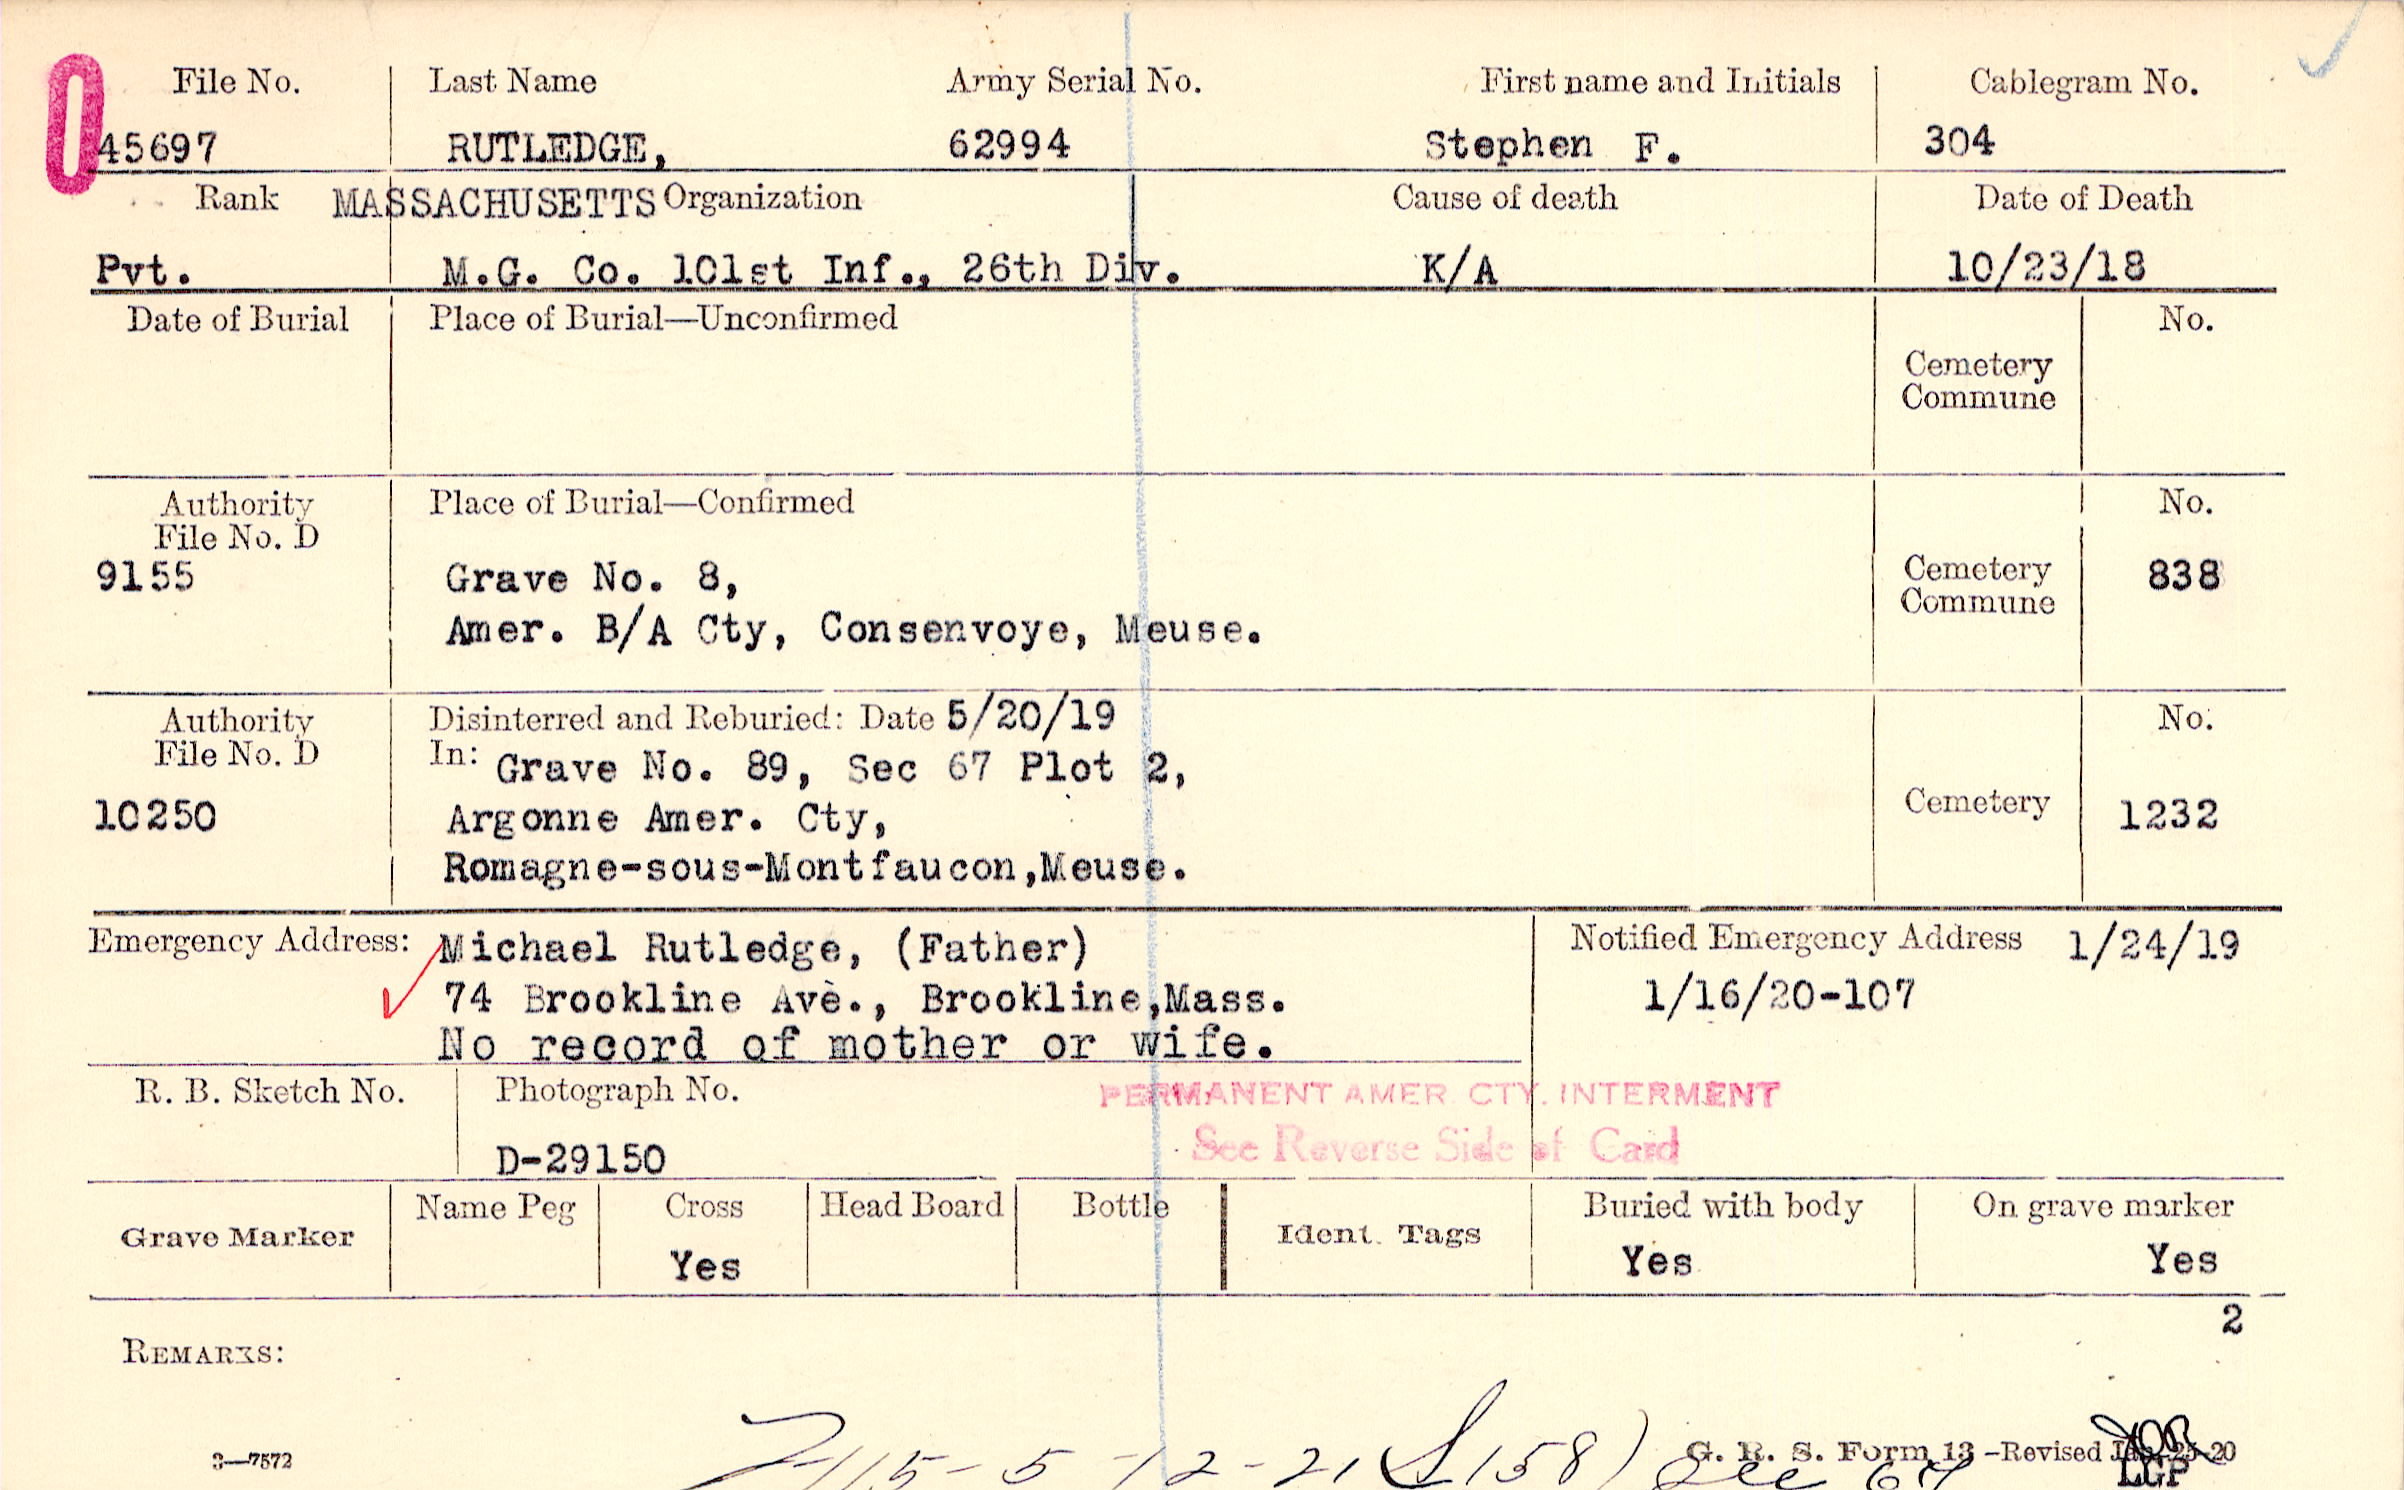 File No. Last Name Army Serial No. First name and Initials Cablegram No.
0
45697 RUTLEDGE, 62994 Stephen F. 304
Rank MASSACHUSETTS Organization Cause of death Date of Death
Pvt. M.G. Co. 101st Inf., 26th Div. K/A 10/23/18
Date of Burial Place of Burial—Unconfirmed No.
Cemetery
Commune
Authority Place of Burial—Confirmed No.
File No. D
9155 Grave No. 8, Cemetery 838
Commune
Amer. B/A Cty, Consenvoye, Meuse.
Authority Disinterred and Reburied: Date 5/20/19 No.
File No. D In: Grave No. 89, Sec 67 Plot 2,
10250 Argonne Amer. Cty, Cemetery 1232
Romagne-sous-Montfaucon,Meuse.
Emergency Address: Michael Rutledge, (Father) Notified Emergency Address 1/24/19
74 Brookline Ave., Brookline,Mass. 1/16/20-107
No record of mother or wife.
R. B. Sketch No. Photograph No. PERMANENT AMER. CTY. INTERMENT
D-29150 See Reverse Side of Card
Grave Marker Name Peg Cross Head Board Bottle Ident. Tags Buried with body On grave marker
Yes Yes Yes
2
REMARKS:
3—7572 G. R. S. Form 13 -Revised Jan-25-20
115-5-12-21 158) See 67
LGP